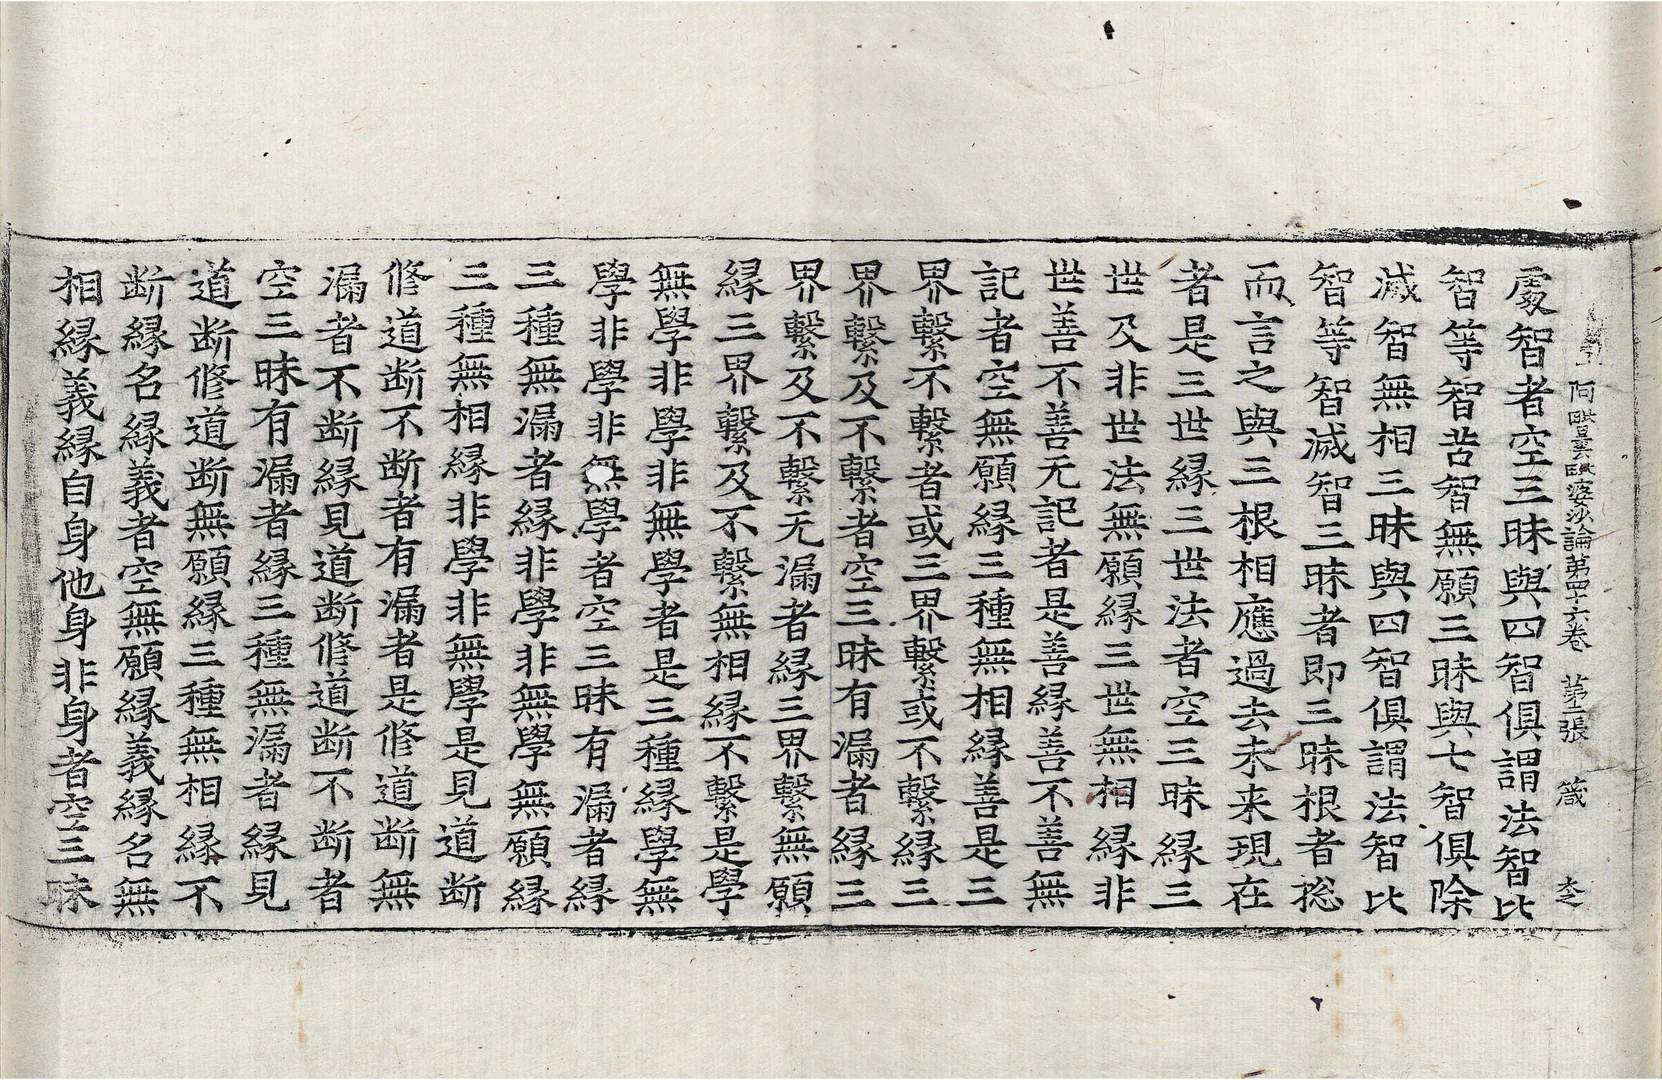 阿毗曇毗婆沙論第四十六卷 第二張 箴 杰
處智者空三昧與四智俱謂法智比
智等智苦智無願三昧與七智俱除
滅智無相三昧與四智俱謂法智比
智等智滅智三昧者即三昧根者捴
而言之與三根相應過去未来現在
者是三世縁三世法者空三昧縁三
世及非世法無願縁三世無相縁非
世善不善无記者是善縁善不善無
記者空無願縁三種無相縁善是三
界繫不繫者或三界繫或不繫縁三
界繫及不繫者空三昧有漏者縁三
界繫及不繫无漏者縁三界繫無願
縁三界繫及不繫無相縁不繫是學
無學非學非無學者是三種縁學無
學非學非無學者空三昧有漏者縁
三種無漏者縁非學非無學無願縁
三種無相縁非學非無學是見道断
修道断不断者有漏者是修道断無
漏者不断縁見道断修道断不断者
空三昧有漏者縁三種無漏者縁見
道断修道断無願縁三種無相縁不
断縁名縁義者空無願縁義縁名無
相縁義縁自身他身非身者空三昧